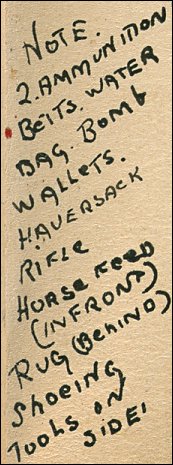 NOTE.
2. AMMUNITION
BElTS. WATER
BAG. BOMb
WAllETS.
HAVERSACK
RIFlE
HORSE FEED
(INFRONT)
RUG (BEHIND)
ShoEING
TOOlS ON
SIDE!